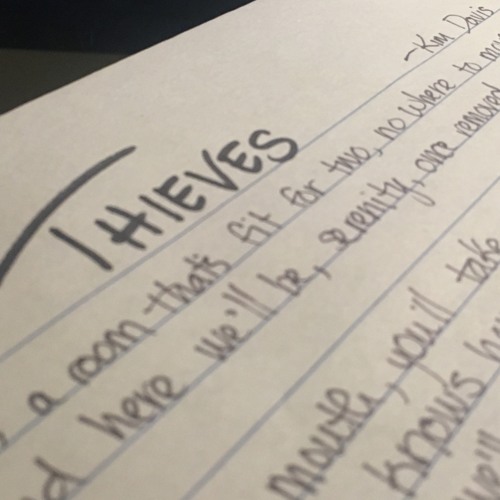 ~Kim Davis
THIEVES
a room that's fit for two, no where to
here we'll be, serenity, once removed
mouth, you'll take
knows
we'll